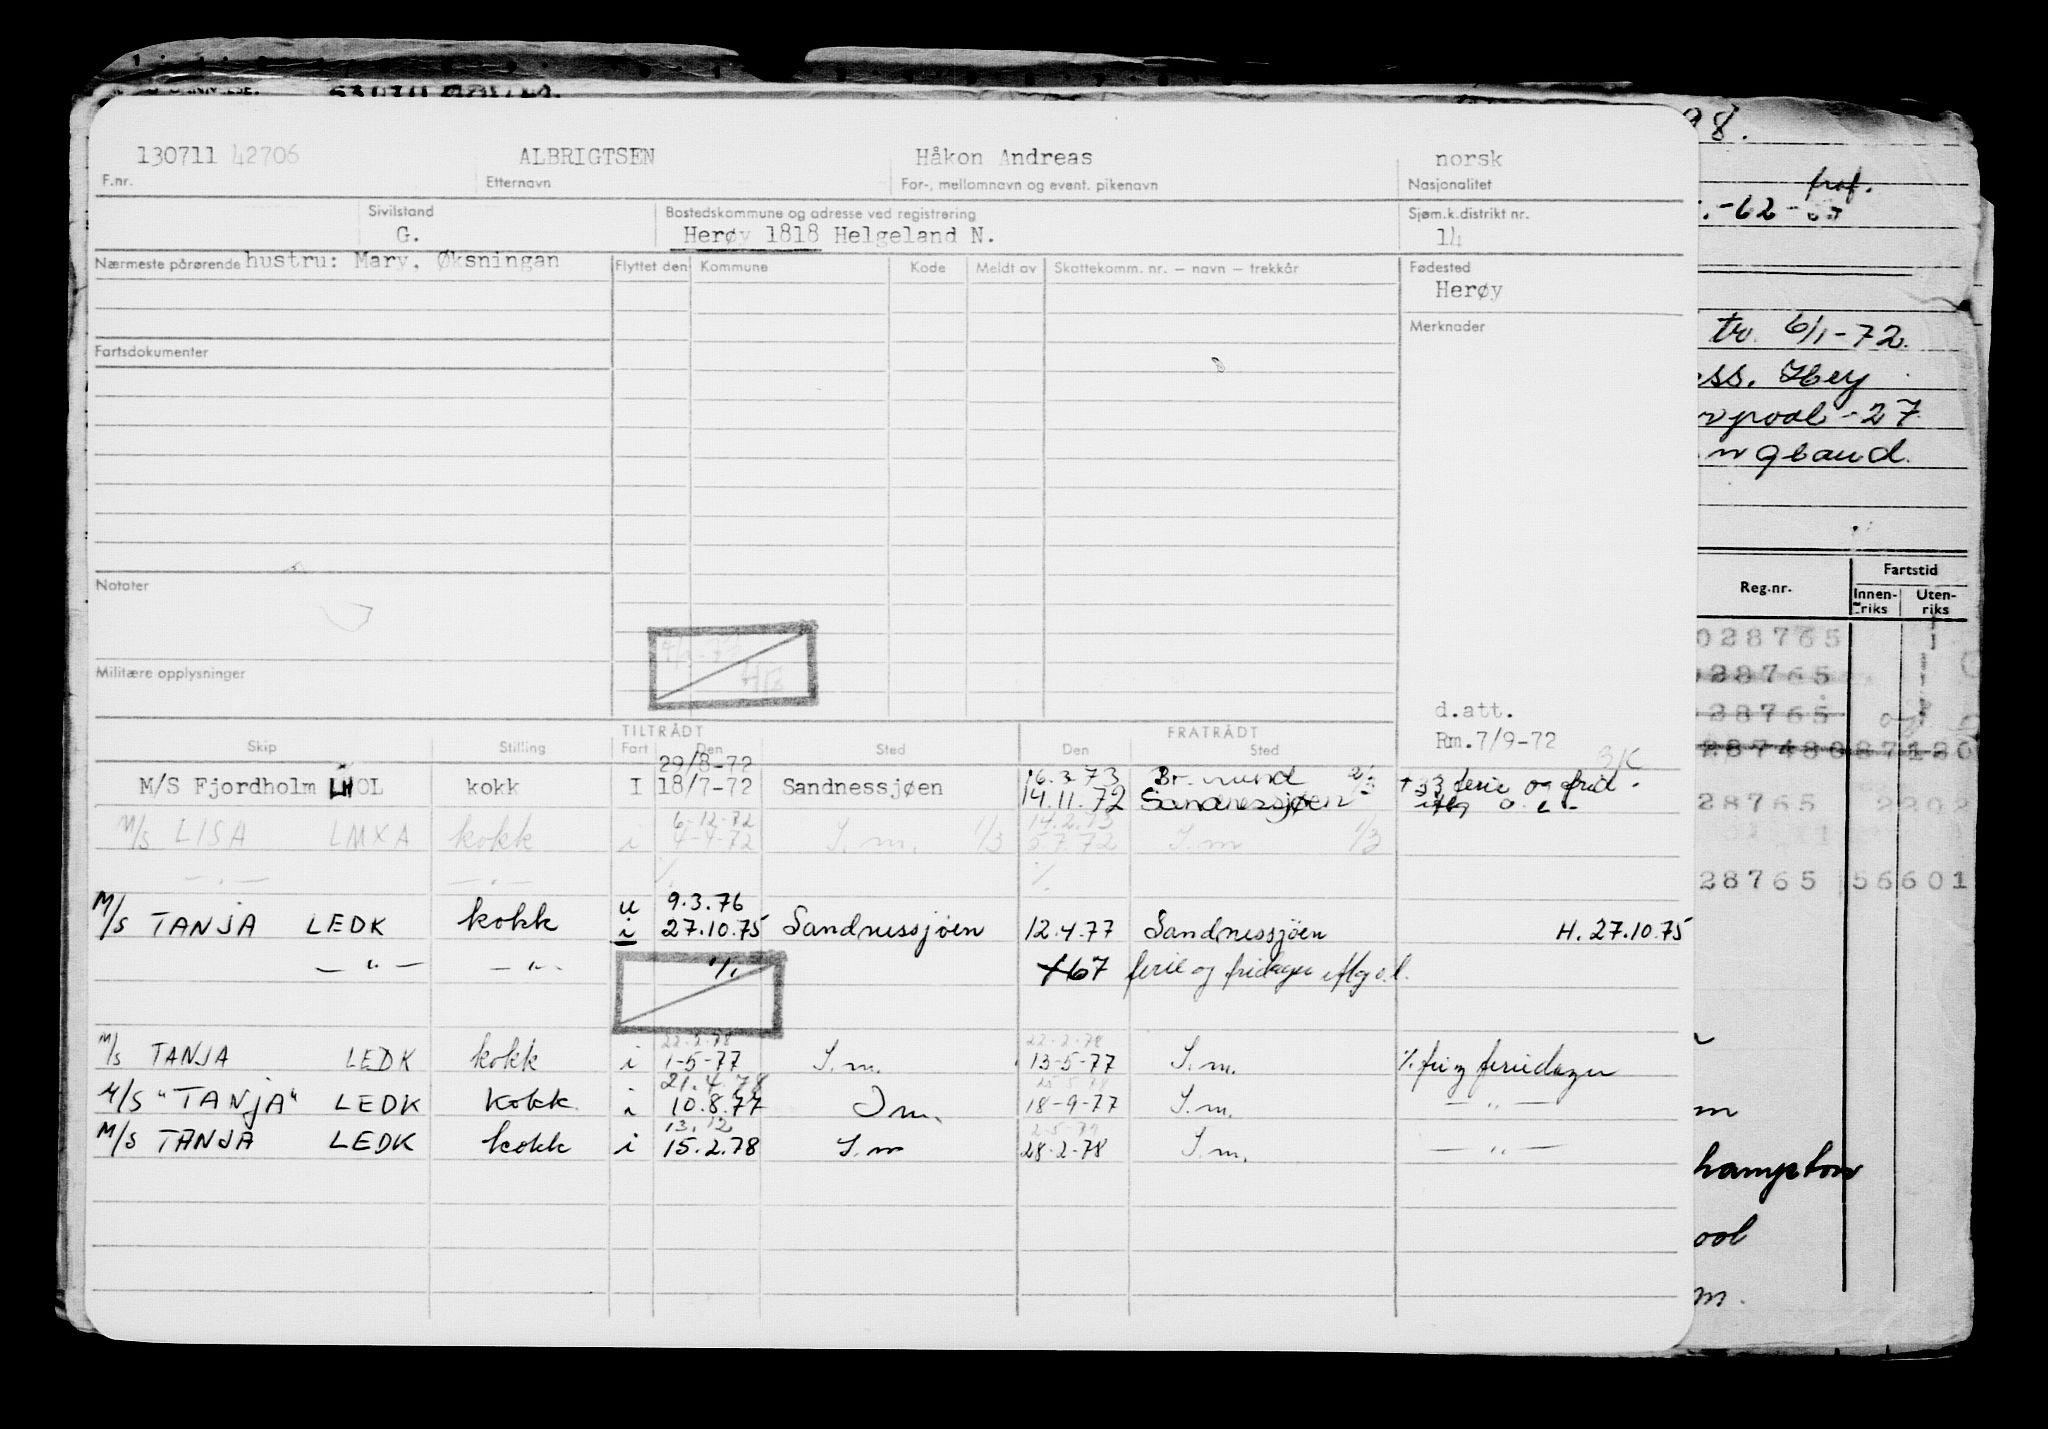 130711 42706 ALBRIGTSEN Håkon Andreas norsk
F.nr. Etternavn For-, mellomnavn og event. pikenavn Nasjonalitet
Sivilstand Bostedskommune og adresse ved registrering Sjøm.k.distrikt nr.
G. Herøy 1818 Helgeland N. 14
Nærmeste pårørende hustru: Mary, Øksningan Flyttet den Kommune Kode Meldt av Skattekomm. nr. – navn – trekkår Fødested
Herøy
Merknader
Fartsdokumenter
Notater
Militære opplysninger
d.att.
Rm.7/9-72
TILTRÅDT FRATRÅDT
Skip Stilling Fart Den Sted Den Sted
29/8-72 16.3.73
M/S Fjordholm kokk I 18/7-72 Sandnessjøen 14.11.72 Sandnessjøen
+33 ferie og frid.
6-12-72 14.2.73
M/S LISA LMXA kokk i 4-4-72 S.m. 1/3 5.7.72 S.m 1/3
— " — — " —
u 9.3.76
M/S TANJA LEDK kokk i 27.10.75 Sandnessjøen 12.4.77 Sandnessjöen H. 27.10.75
— " — — " — +67 ferie og fridager iflg o.l.
22.2.78 22.2.78
M/S TANJA LEDK kokk i 1-5-77 S.m. 13-5-77 S.m. fri og feriedager
21.4.78
M/S "TANJA" LEDK kokk i 10.8.77 S.m. 18-9-77 S.m. — " —
13.12
M/S TANJA LEDK kokk i 15.2.78 S.m 28.2-78 S.m. — " —
98.
.-62-
tr. 6/1-72.
ess. Hey
rpool -27
Reg.nr. Fartstid
Innen-riks Uten-riks
028765
028765
28765
28765 2202
28765 56601
m
hampton
ool
m.